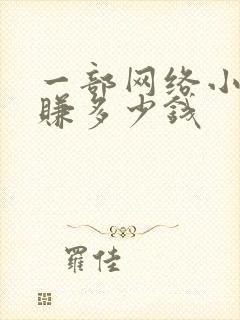 一部网络小
赚多少钱
羅佳